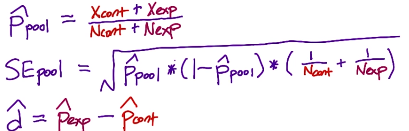 p̂pool = Xcont + Xexp / Ncont + Nexp
SEpool = √p̂pool * (1-p̂pool) * (1/Ncont + 1/Nexp)
d̂ = p̂exp - p̂cont